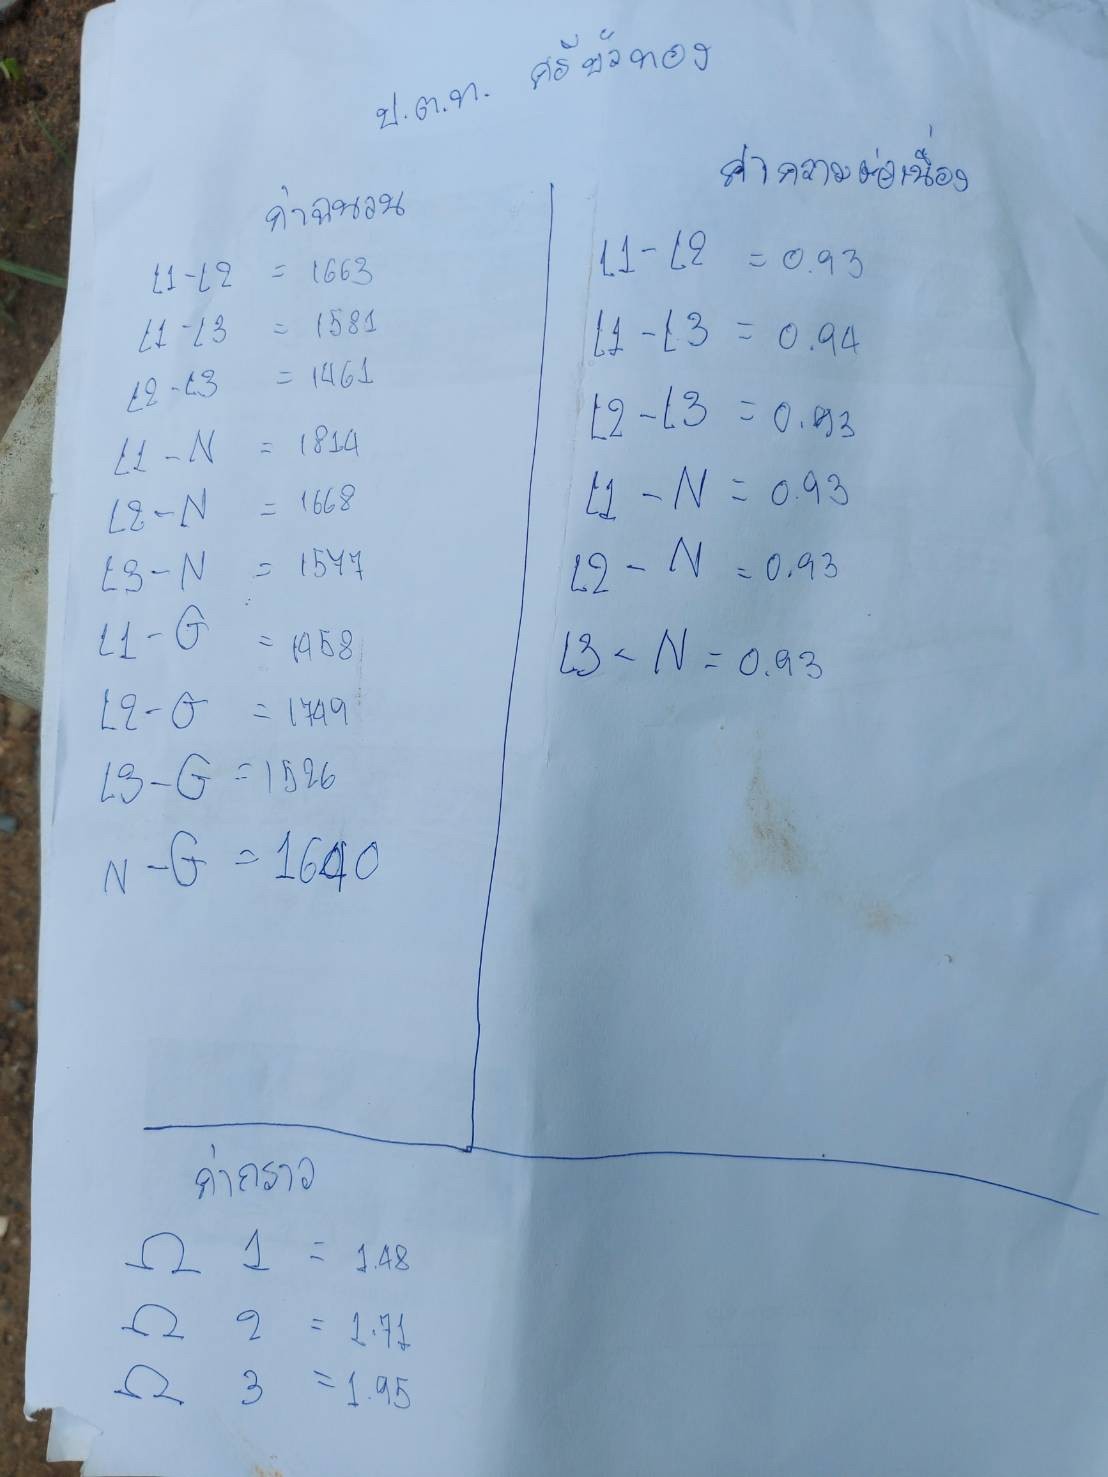 ป.ต.ท. ศรีบัวทอง
ค่าฉนวน
L1-L2 = 1663
L1-L3 = 1581
L2-L3 = 1461
L1-N = 1814
L2-N = 1668
L3-N = 1577
L1-G = 1958
L2-G = 1749
L3-G = 1526
N-G = 1640
ค่าความต่อเนื่อง
L1-L2 = 0.93
L1-L3 = 0.94
L2-L3 = 0.93
L1-N = 0.93
L2-N = 0.93
L3-N = 0.93
ค่ากราว
Ω 1 = 1.48
Ω 2 = 1.71
Ω 3 = 1.95